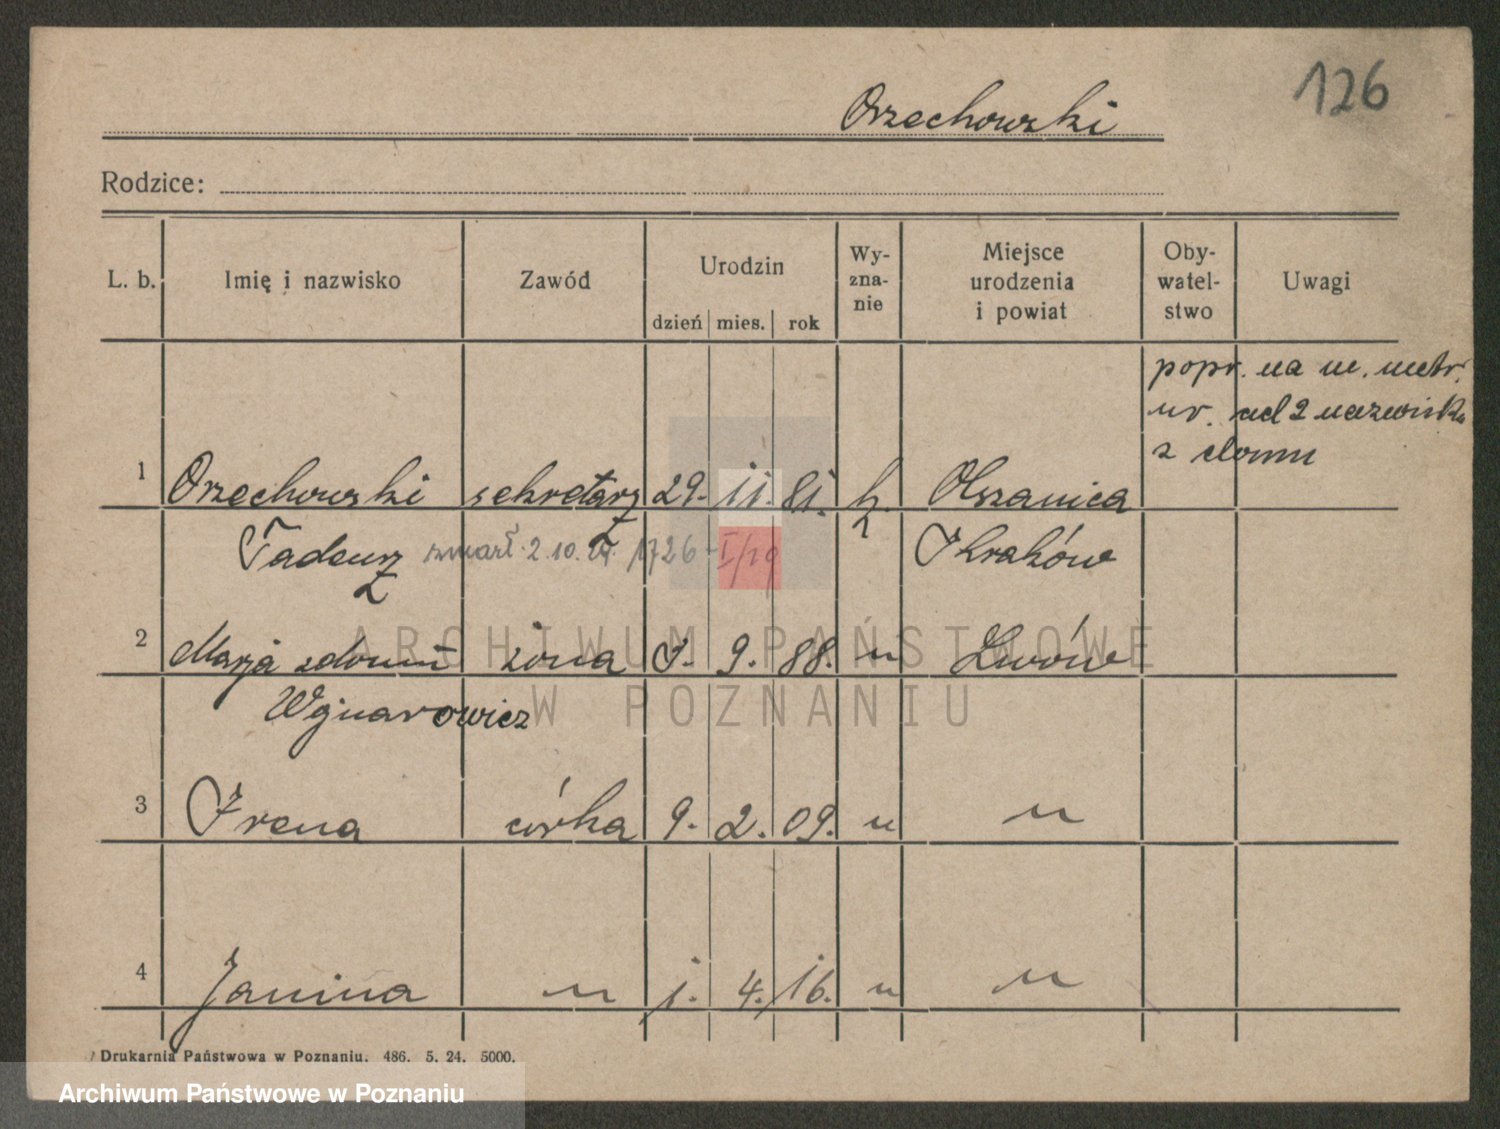 126
Orzechowski
Rodzice:
L. b. Imię i nazwisko Zawód Urodzin Wy-zna-nie Miejsce urodzenia i powiat Oby-watel-stwo Uwagi
dzień mies. rok
popr. na m. metr.
ur. nazwiska
z domu
1 Orzechowski sekretarz 29. 11. 81. k. Olszanica
Tadeusz zmarł 2.10. 1726-I/19 Kraków
2 Marja z domu żona 9. 88. " Lwów
Wojnarowicz
3 Irena córka 9. 2. 09. " "
4 Janina " 1. 4. 16. " "
ARCHIWUM PAŃSTWOWE
W POZNANIU
Drukarnia Państwowa w Poznaniu. 486. 5. 24. 5000.
Archiwum Państwowe w Poznaniu